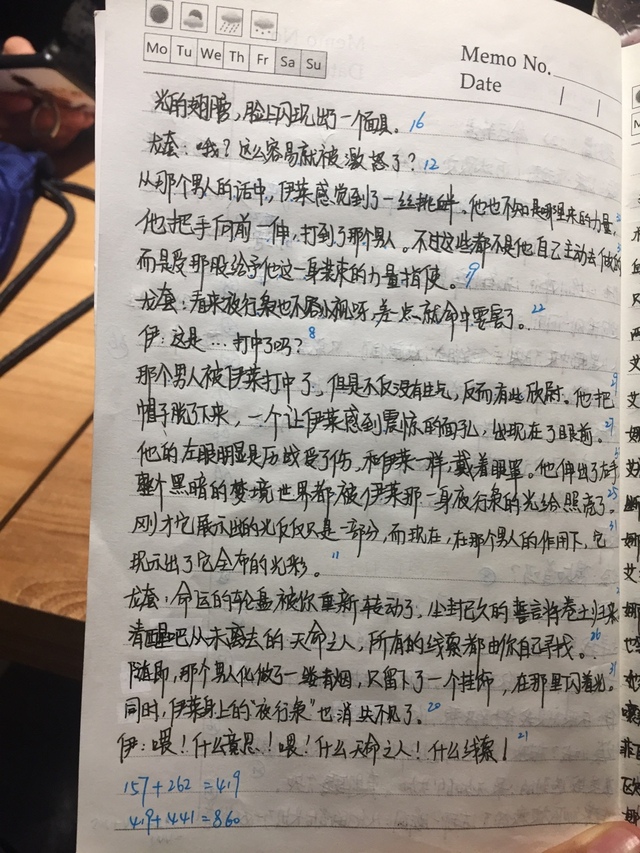 Mo Tu We Th Fr Sa Su
Memo No.
Date
光的翅膀，脸上闪现出了一个面具。 16
龙套：哦？这么容易就被激怒了？ 12
从那个男人的话中，伊莱感觉到了一丝挑衅。他也不知是哪里来的力量，
他把手向前一伸，打到了那个男人。不过这些都不是他自己主动去做的
而是受那股给予他这一身装束的力量指使。 9
龙套：看来夜行衾也不容小视呀，差点就命中要害了。 22
伊：这是…打中了吗？ 8
那个男人被伊莱打中了，但是不仅没有生气，反而有些欣慰。他把 29
帽子脱了下来，一个让伊莱感到震惊的面孔，出现在了眼前。 27
他的左眼明显是历战受了伤，和伊莱一样，戴着眼罩。他伸出了左手
整个黑暗的梦境世界都被伊莱那一身夜行衾的光给照亮了。 25
刚才它展示出的光仅仅只是一部分，而现在，在那个男人的作用下，它 31
现示出了它全部的光彩。 11
龙套：命运的轮盘被你重新转动了，尘封已久的誓言将卷土归来
清醒吧从未离去的天命之人，所有的线索都由你自己寻找。 26
随即，那个男人化做了一缕青烟，只留下了一个挂饰，在那里闪着光。 31
同时，伊莱身上的“夜行衾”也消失不见了。 20
伊：喂！什么意思！喂！什么天命之人！什么线索！ 21
157+262=419
419+441=860